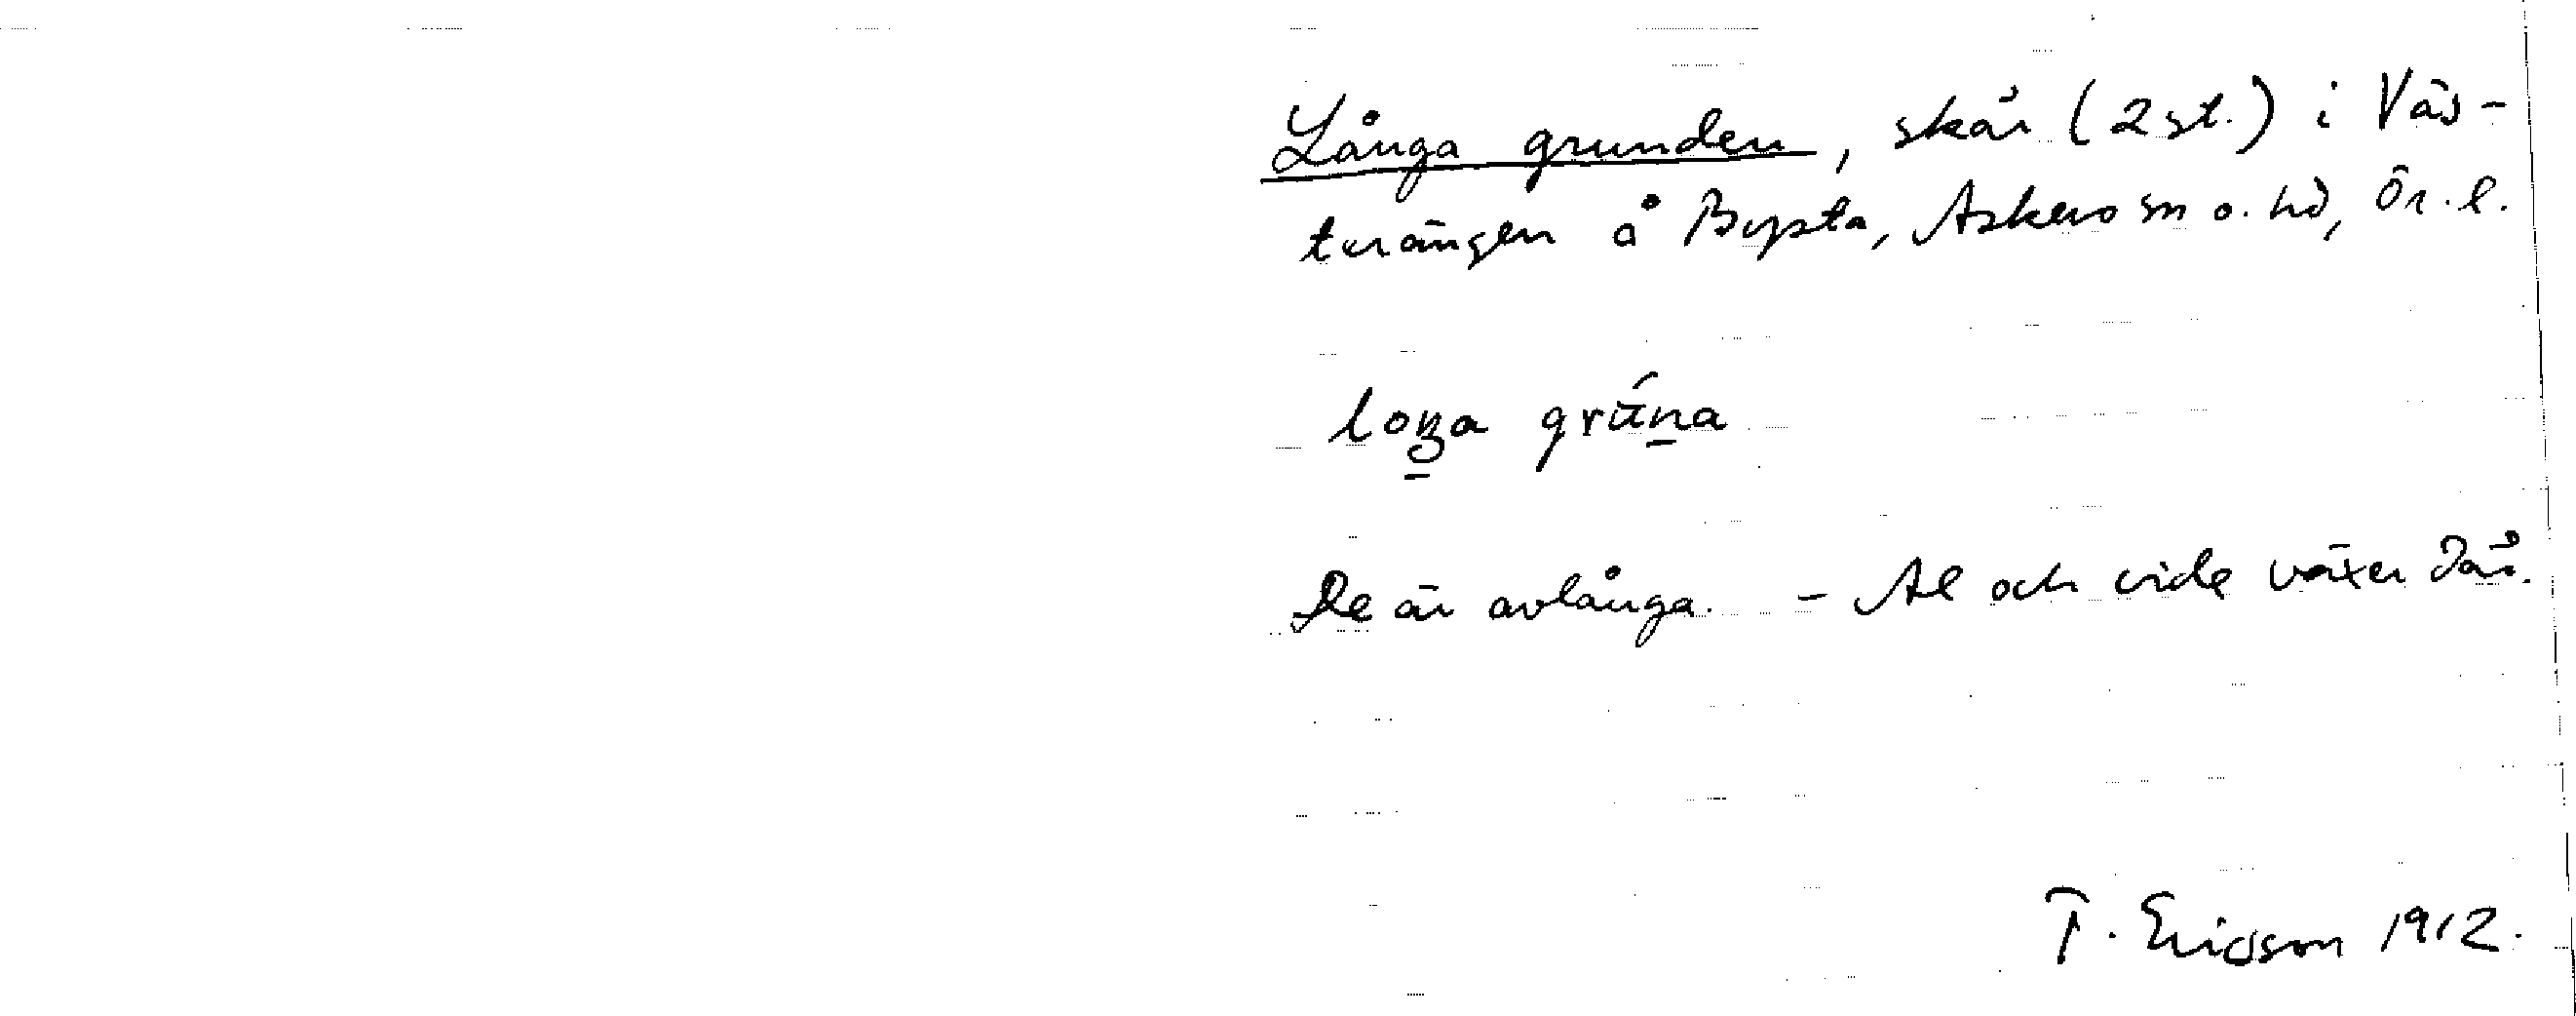 Långa grunden, skär (2 st.) i Väs-
terängen å Bysta, Askers sn o. hd, Ör. l.
loŋa grúna
De är avlånga. - Al och vide växer där.
T. Ericsson 1912.